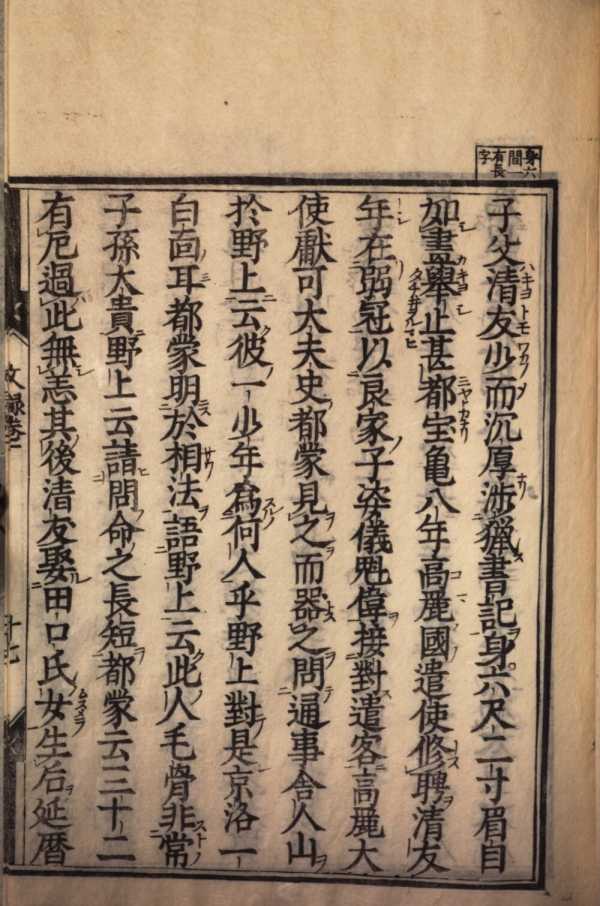 身六
間一
有長
字
子父清友少而沉厚渉猟書記身六尺二寸眉目
如畫舉止甚都宝亀八年高麗國遣使修聘清友
年在弱冠以良家子姿儀魁偉接對遣客高麗大
使獻可大夫史都蒙見之而器之問通事舎人山
於野上云彼一少年為何人乎野上對是京洛一
白面耳都蒙明於相法語野上云此人毛骨非常
子孫太貴野上云請問命之長短都蒙云三十二
有厄過此無恙其後清友娶田口氏女生后延暦
文録卷一
十七